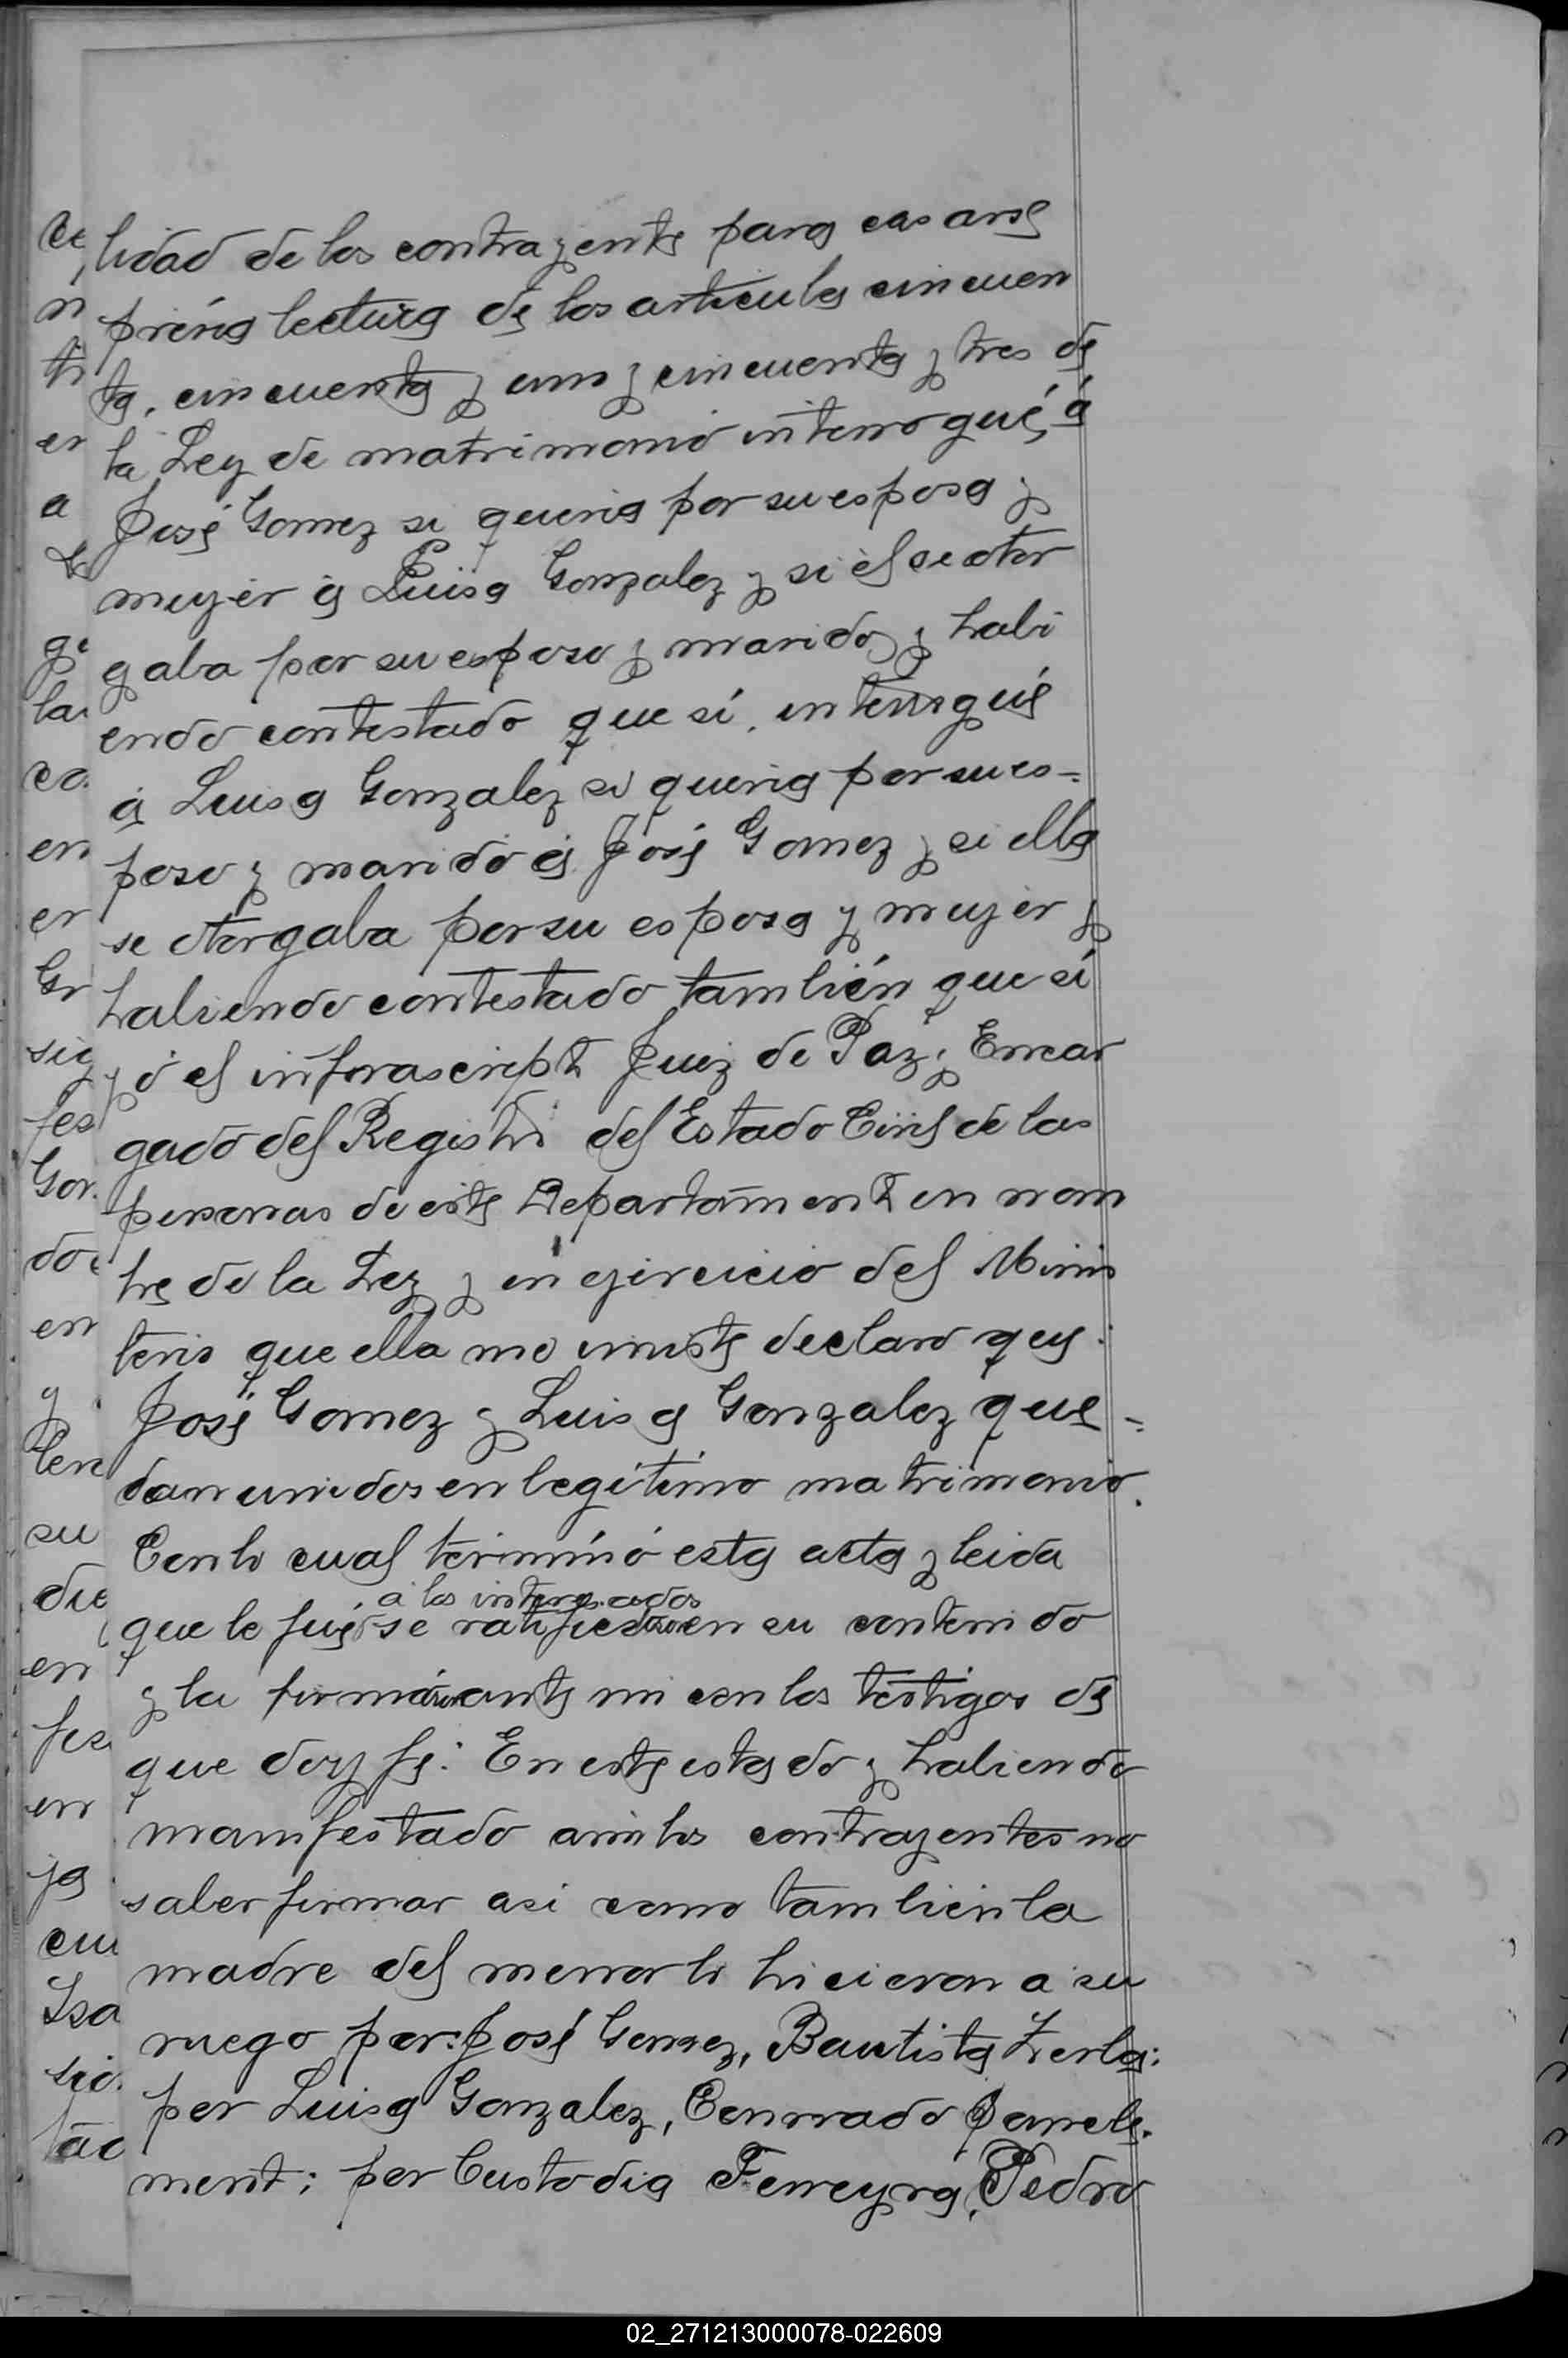 lidad de los contrayente para casarse
prévia lectura de los articulos cincuen
ta, cincuenta y uno y cincuenta y tres de
la Ley de matrimonio interrogué, á
José Gomez si queria por su esposa y
mujer á Luisa Gonzalez y si él se otor
gaba por su esposo y marido, y habi
endo contestado que sí, interrogué
á Luisa Gonzalez si queria por su es=
poso y marido á José Gomez y si ella
se otorgaba por su esposa y mujer y
habiendo contestado también que sí
yó el infrascripto Juez de Paz y Encar
gado del Registro del Estado Civil de las
personas de este Departamento en nom
bre de la Ley y en ejercicio del Minis
terio que ella me inviste declaro que
José Gomez y Luisa Gonzalez que=
dan unidos en legítimo matrimonio.
Con lo cual terminó esta acta y leida
á los interesados
que le fué se ratificaron en su contenido
y la firmáron ante mi con los testigos de
que doy fé: En este estado y habiendo
manifestado ambos contrayentes no
saber firmar asi como tambien la
madre del menor lo hicieron a su
ruego por: José Gomez, Bautista Zerla:
por Luisa Gonzalez, Conrado
ment; por Custodia Ferreyra, Pedro
02_271213000078-022609